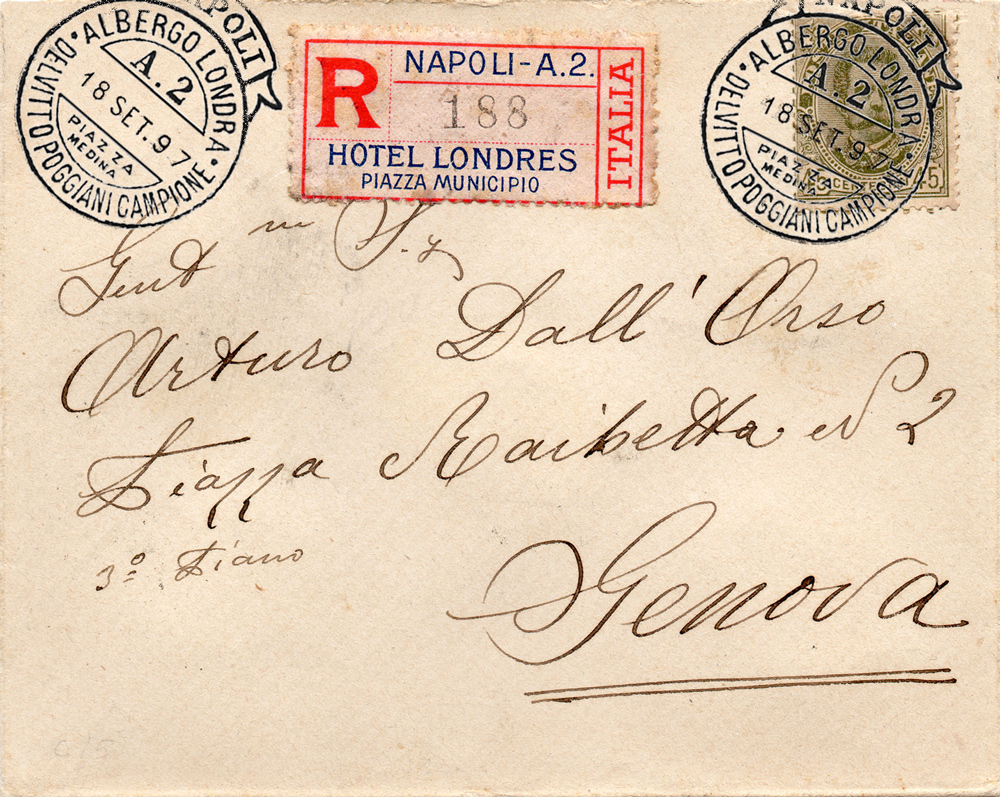 NAPOLI
ALBERGO LONDRA
A.2
18 SET. 97
PIAZZA
MEDINA
DEL VITTO POGGIANI CAMPIONE
R
NAPOLI-A.2.
188
HOTEL LONDRES
PIAZZA MUNICIPIO
ITALIA
NAPOLI
ALBERGO LONDRA
A.2
18 SET. 97
PIAZZA
MEDINA
DEL VITTO POGGIANI CAMPIONE
45
Gent mo S.r
Arturo Dall'Orso
Piazza Raibetta N 2
3º Piano
Genova